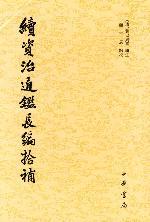 續資治通鑑長編拾補
中華書局